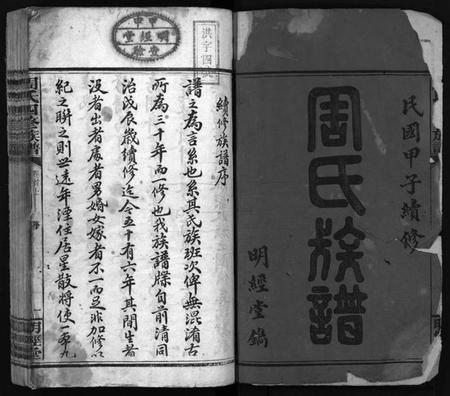 民國甲子續修
周氏族譜
明經堂鐫
洪字四號
明經堂
續修族譜序
譜之為言系也系其氏族班次俾無混淆古
所為三十年而一修也我族譜牒自前清同
治戊辰歲續修迄今五十有六年其間生者
沒者出者處者男婚女嫁者不一而足非加修以
紀之聯之則世遠年湮住居星散將使一本九
周氏四修族譜
明經堂